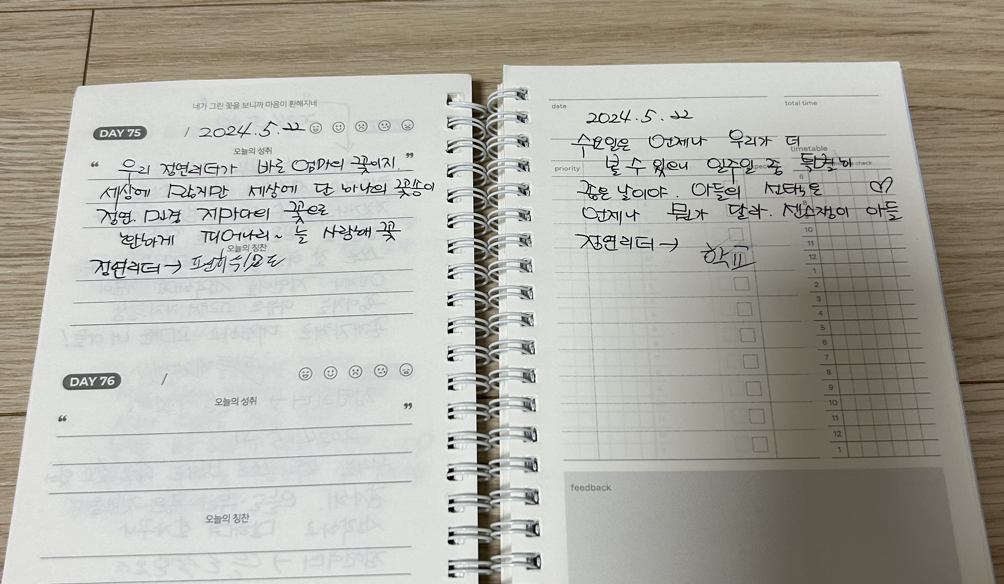 네가 그린 꽃을 보니까 마음이 환해지네
DAY 75 / 2024.5.22
오늘의 성취
“ 우리 정연리더가 바로 엄마의 꽃이지. ”
세상에 많지만 세상에 단 하나의 꽃송이
정연. 마전 저마다의 꽃으로
환하게 피어나리~ 늘 사랑해 꽃
오늘의 칭찬
정연리더→
DAY 76 /
오늘의 성취
“ ”
오늘의 칭찬
date total time
2024.5.22
수요일은 언제나 우리가 더
timetable
볼 수 있으니 일주일 중 특별히
priority check
좋은 날이야. 아들의 선택은 ♡
언제나 뭔가 달라. 센스쟁이 아들
정연리더→
학교
6
10
11
12
1
2
3
4
5
6
7
8
9
10
11
12
1
feedback